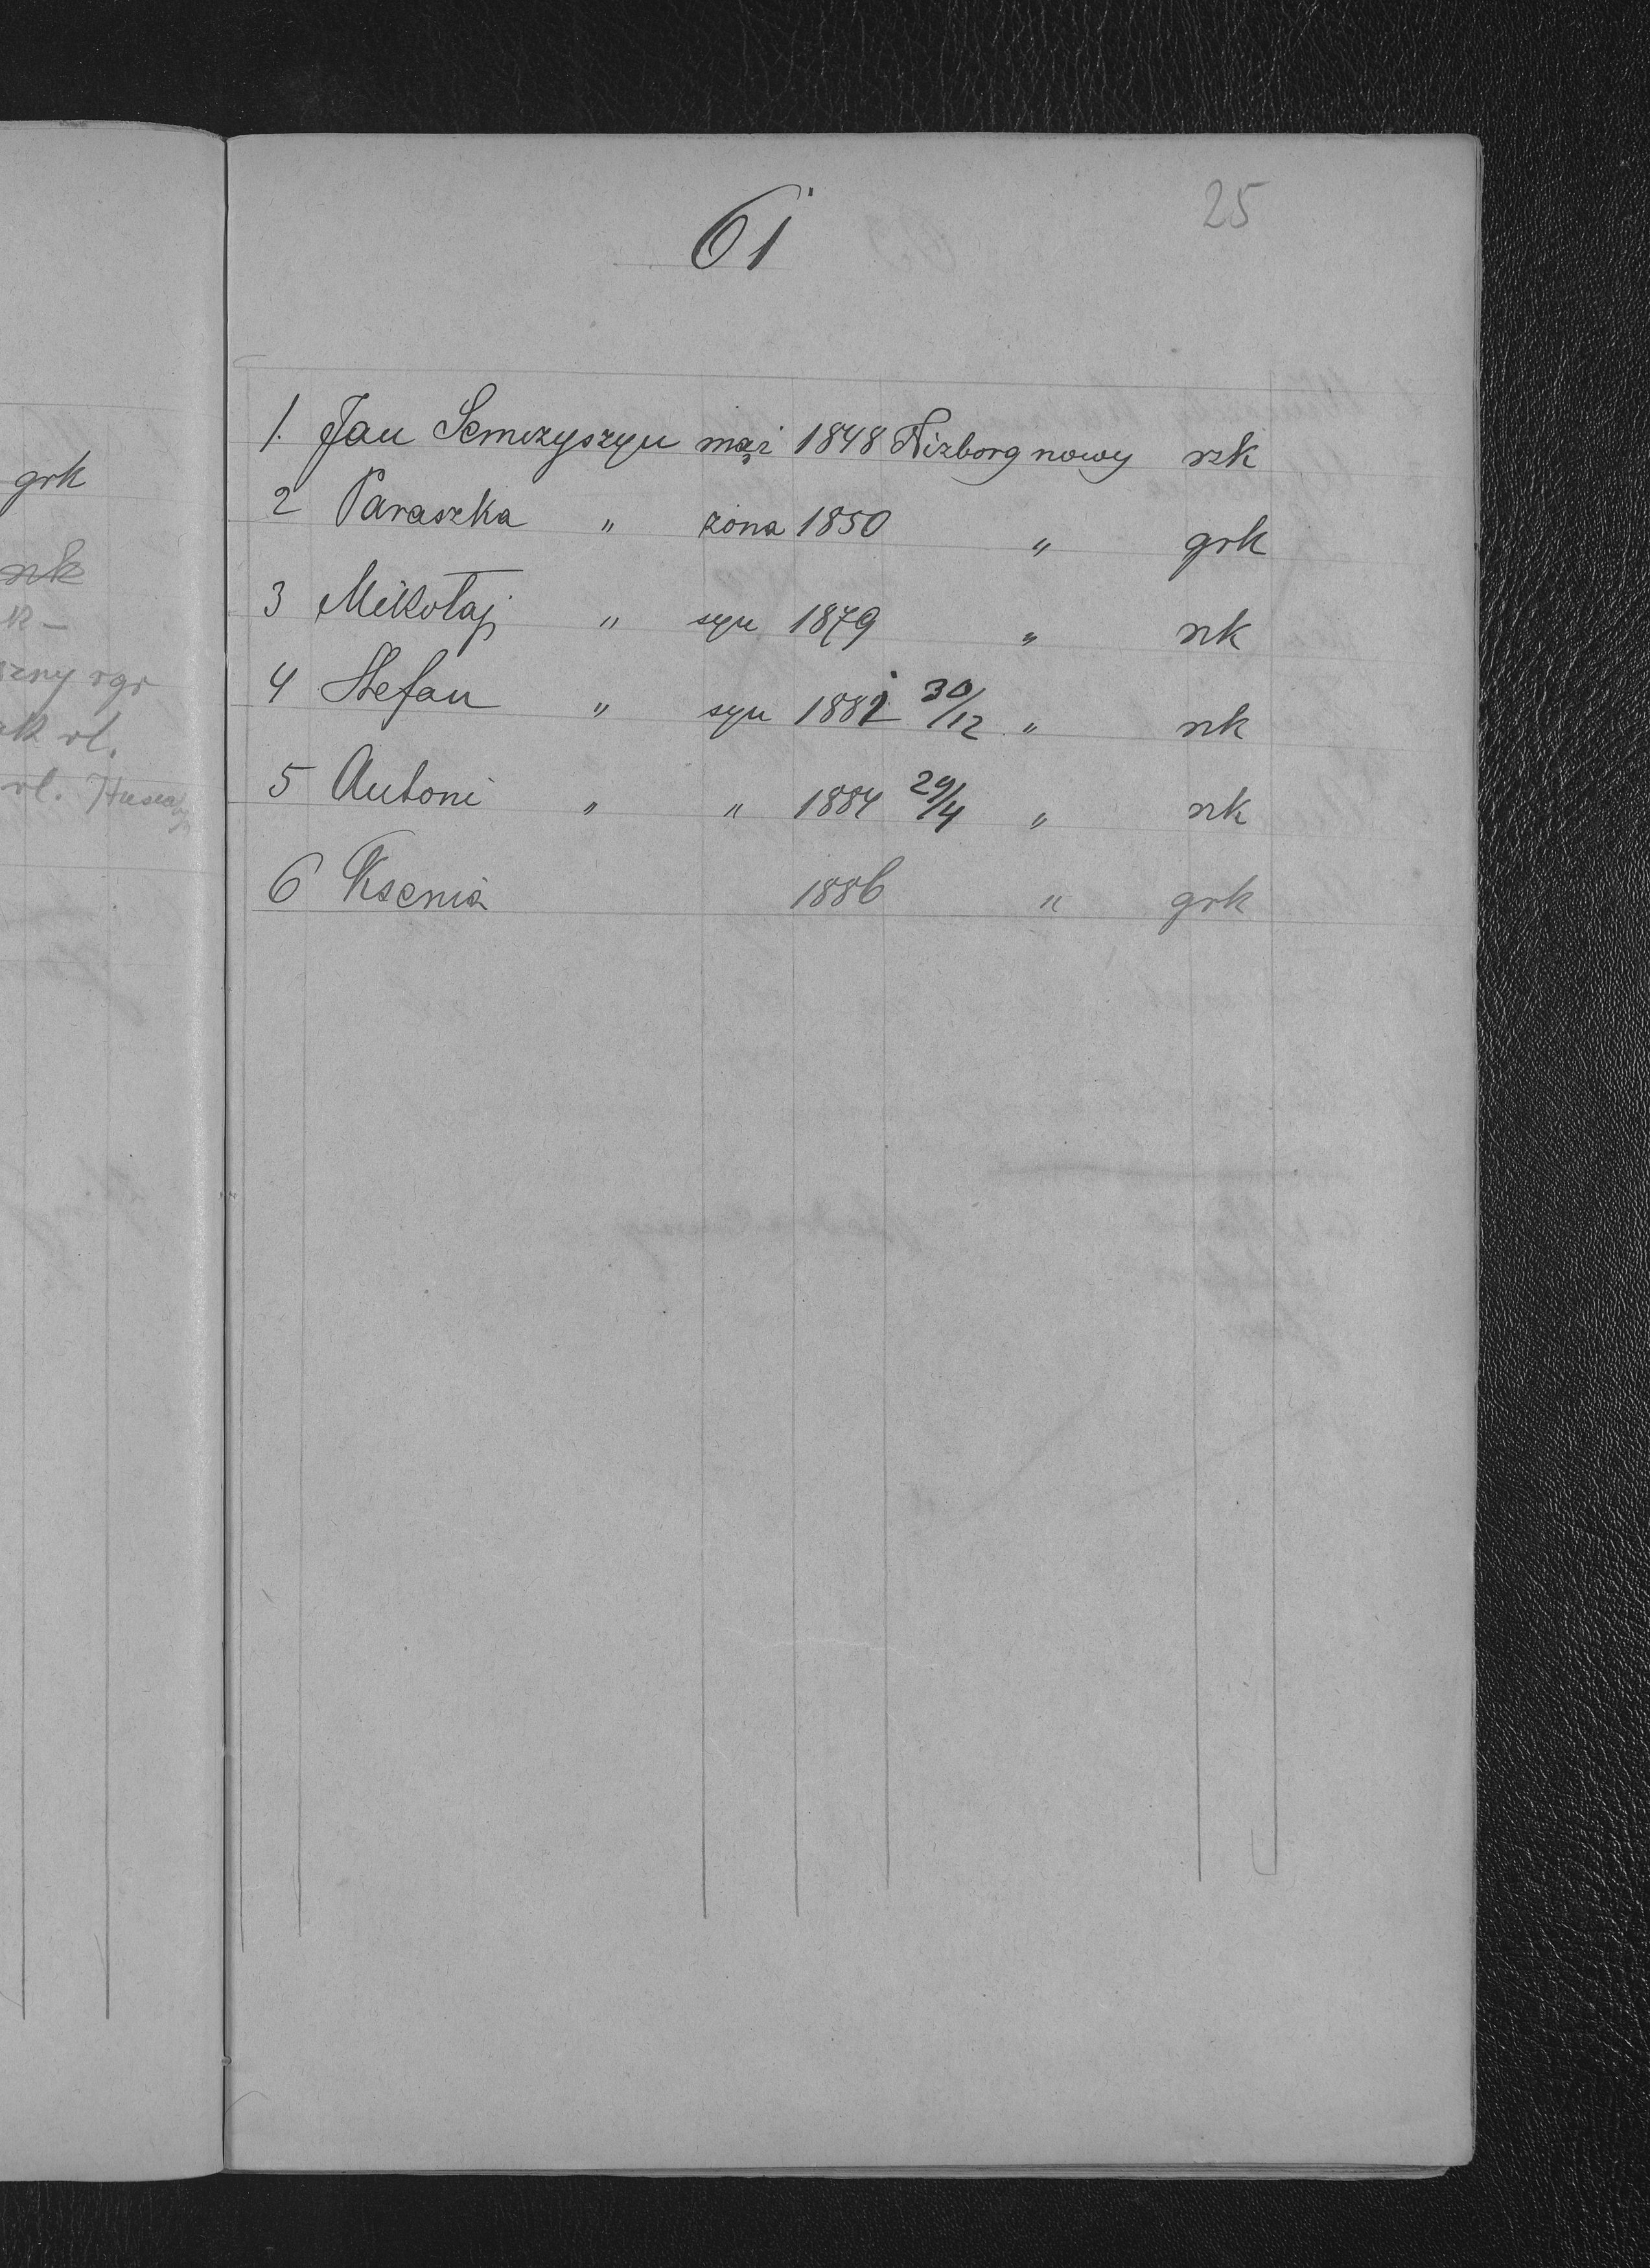 grk
nk
k -
rgr
rl.
rl.
61
25
1. Jan Semczyszyn mąż 1848 Niżborg nowy rzk
2 Paraszka " żona 1850 " grk
3 Mikołaj " syn 1879 " rzk
4 Stefan " syn 1881 30/12 " rzk
5 Antoni " " 1884 29/4 " rzk
6 Ksenia 1886 " grk